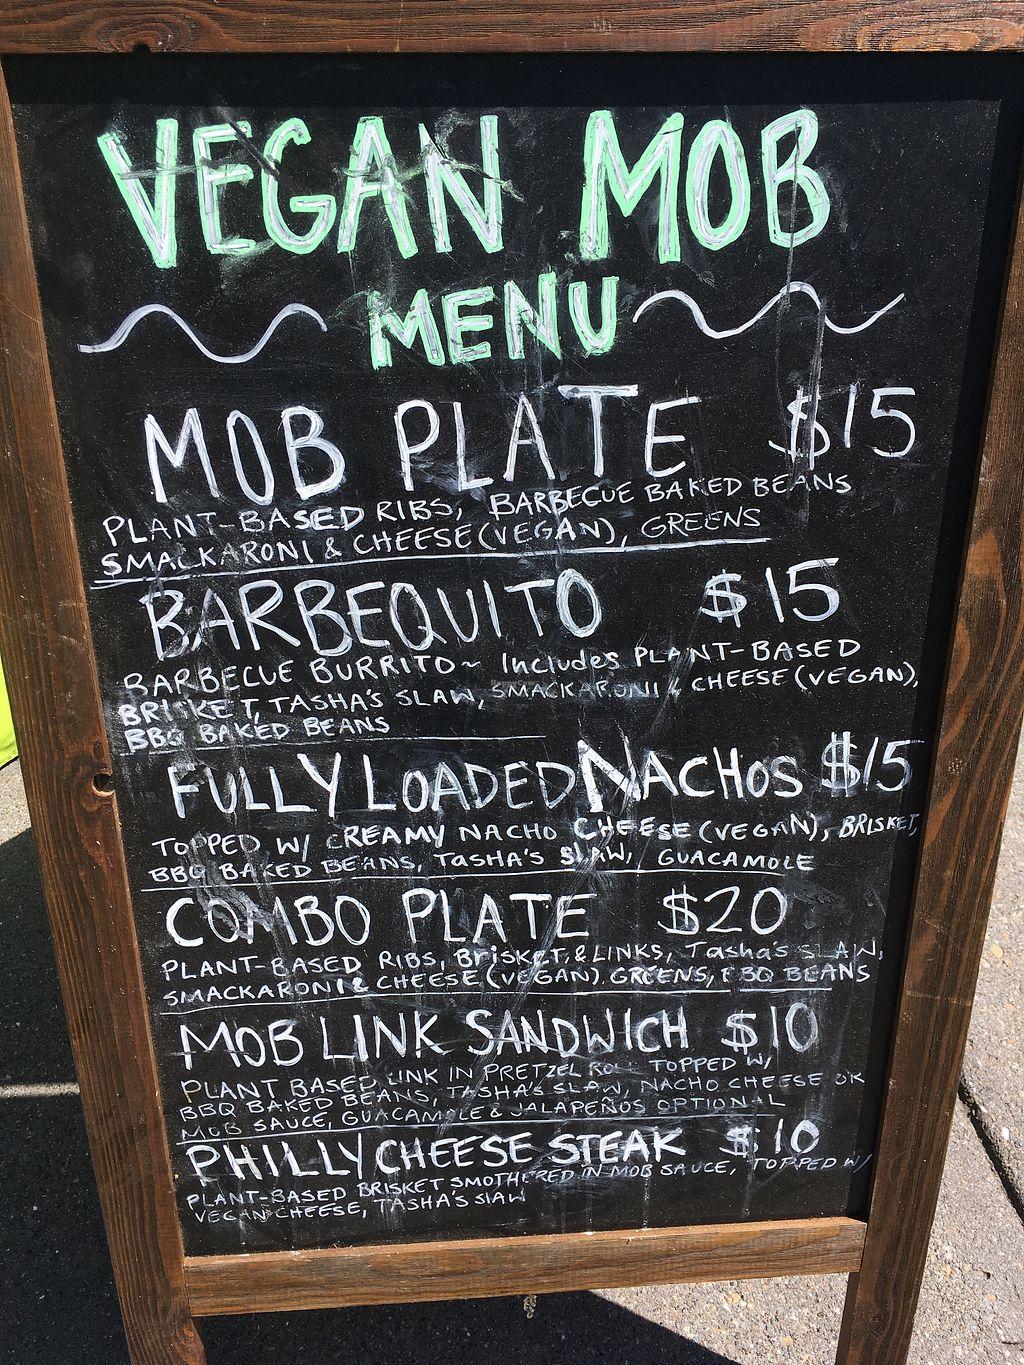 VEGAN MOB
MENU
MOB PLATE $15
PLANT-BASED RIBS, BARBECUE BAKED BEANS
SMACKARONI & CHEESE (VEGAN), GREENS
BARBEQUITO $15
BARBECUE BURRITO~ Includes PLANT-BASED
BRISKET, TASHA'S SLAW, SMACKARONI & CHEESE (VEGAN),
BBQ BAKED BEANS
FULLY LOADED NACHOS $15
TOPPED W/ CREAMY NACHO CHEESE (VEGAN), BRISKET,
BBQ BAKED BEANS, TASHA'S SLAW, GUACAMOLE
COMBO PLATE $20
PLANT-BASED RIBS, BRISKET, & LINKS, Tasha's SLAW,
SMACKARONI & CHEESE (VEGAN) GREENS, BBQ BEANS
MOB LINK SANDWICH $10
PLANT BASED LINK IN PRETZEL ROLL TOPPED W/
BBQ BAKED BEANS, TASHA'S SLAW, NACHO CHEESE OR
MOB SAUCE, GUACAMOLE & JALAPEÑOS OPTIONAL
PHILLY CHEESE STEAK $10
PLANT-BASED BRISKET SMOTHERED IN MOB SAUCE, TOPPED W/
VEGAN CHEESE, TASHA'S SlAW